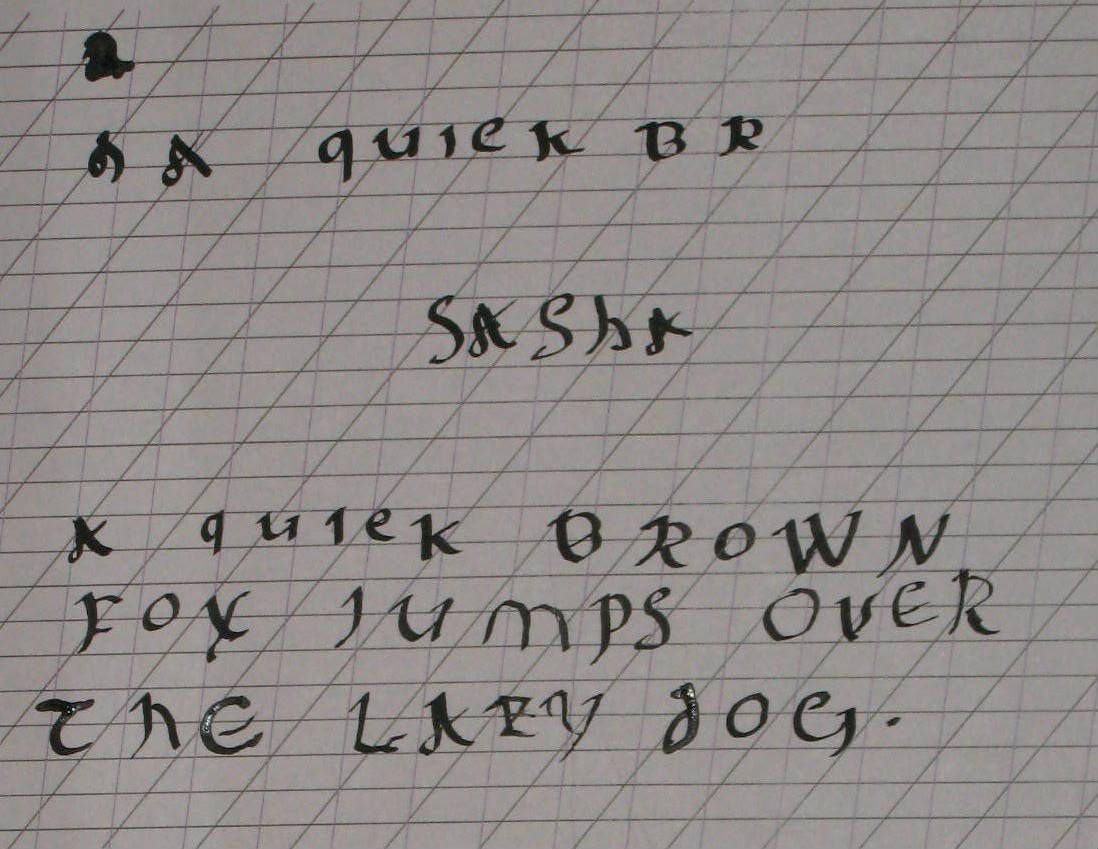 a
A A quick BR
SASHA
A quick BROWN
FOX JUMPS OVER
THE LAZY DOG.